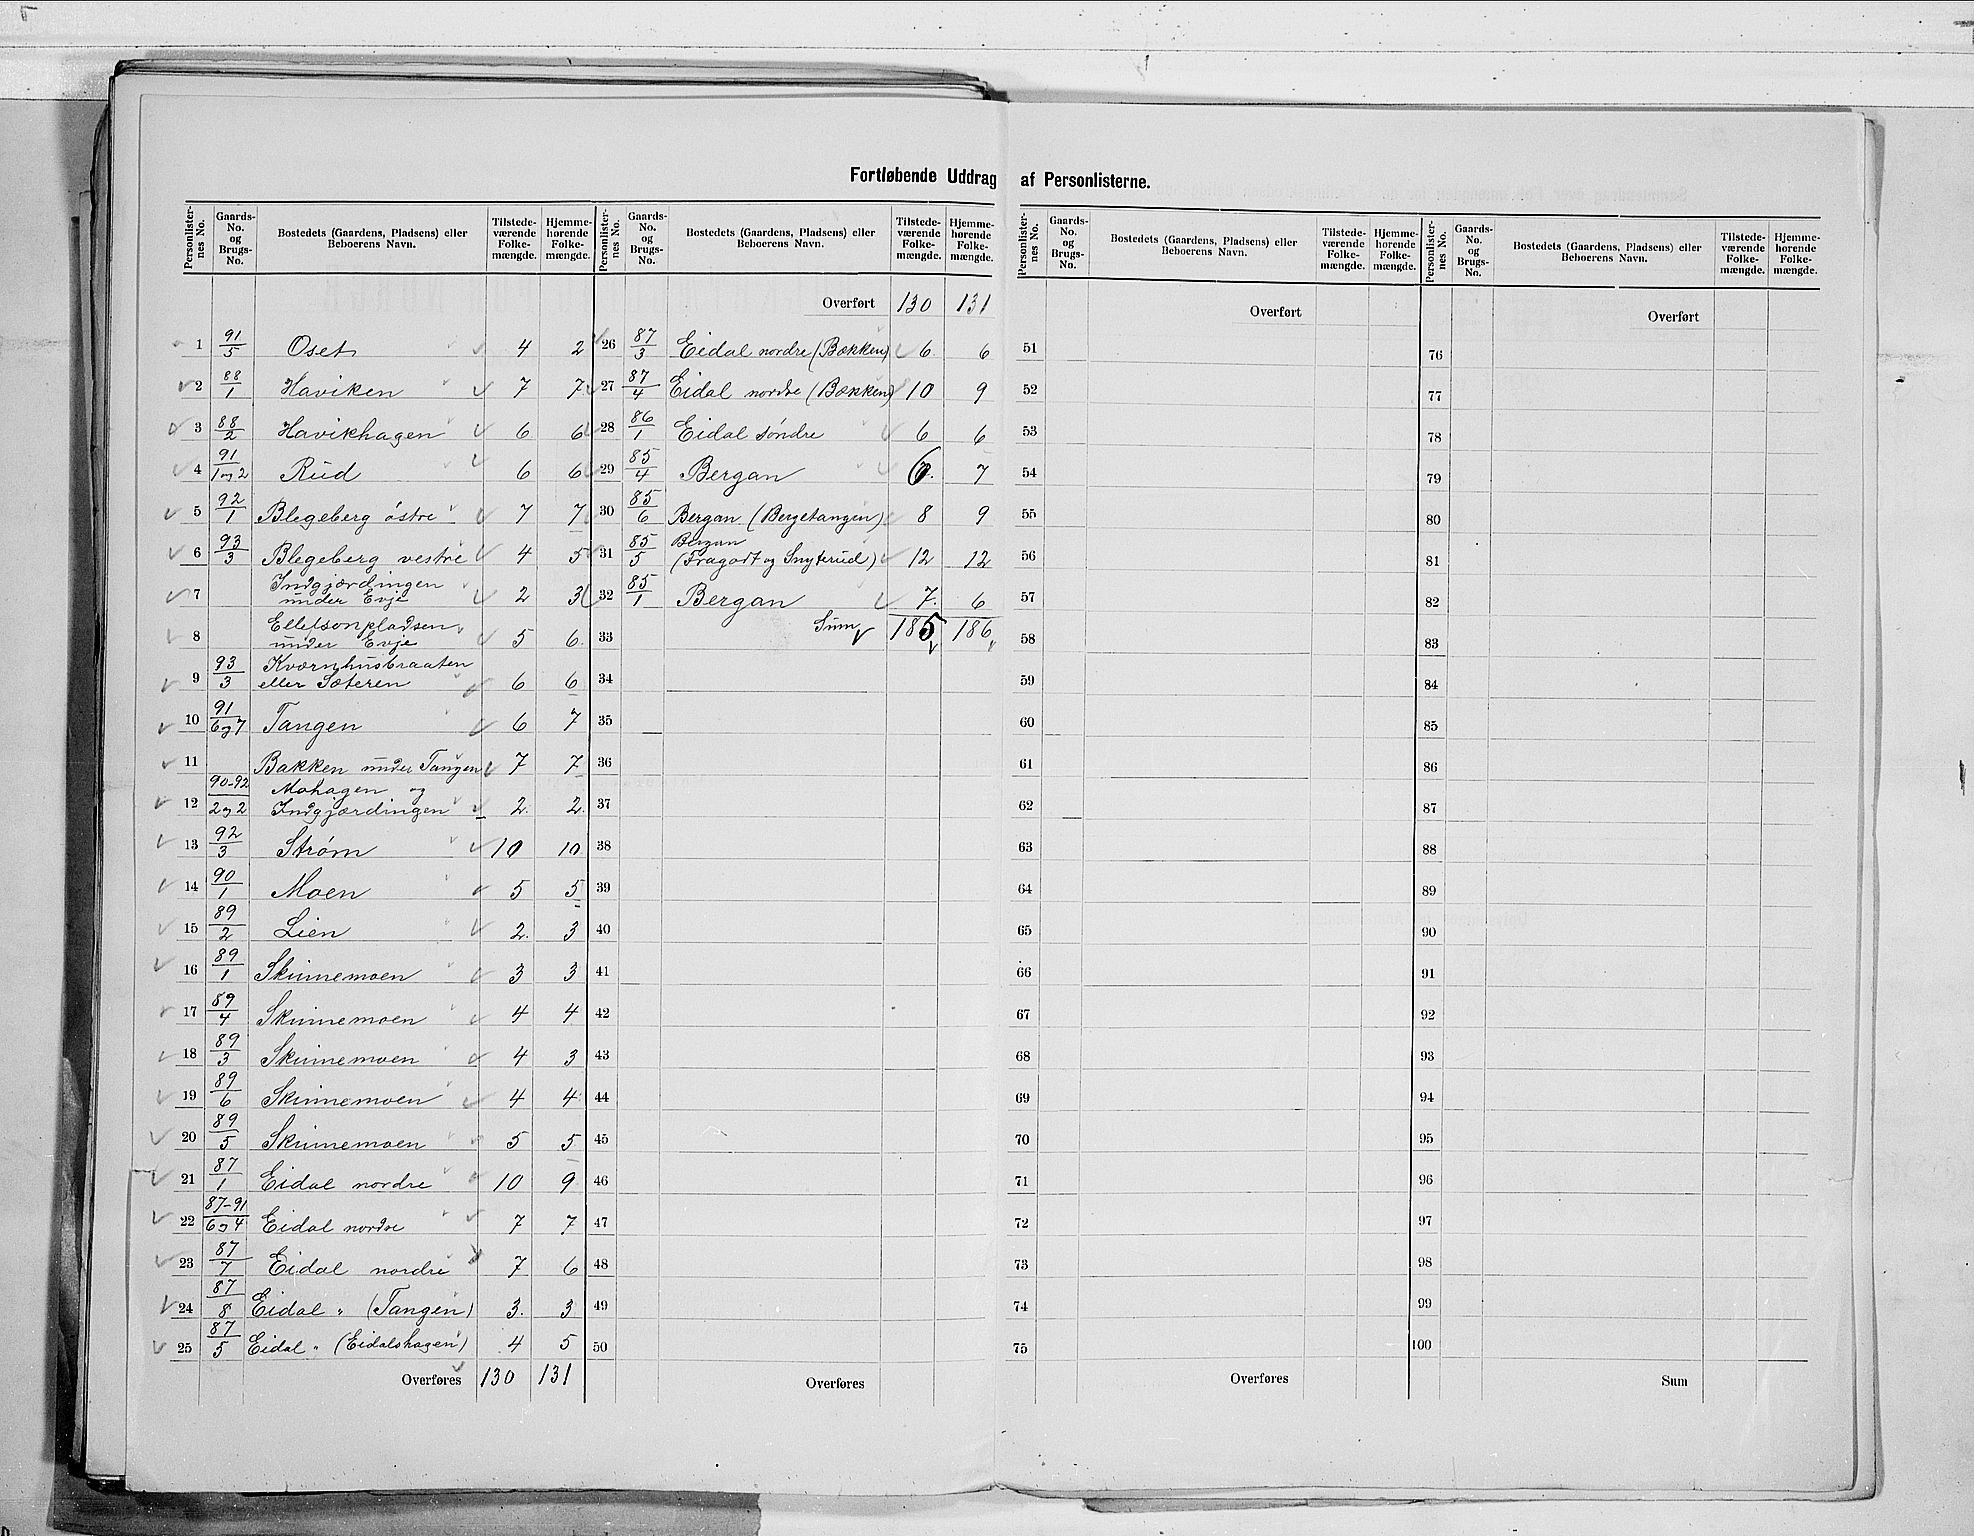 Fortløbende Uddrag af Personlisterne.
Personlister-nes No. | Gaards-No. og Brugs-No. | Bostedets (Gaardens, Pladsens) eller Beboerens Navn. | Tilstede-værende Folke-mængde. | Hjemme-hørende Folke-mængde.
1 | 91/5 | Oset | 4 | 2
2 | 88/1 | Haviken | 7 | 7
3 | 88/2 | Havikhagen | 6 | 6
4 | 91/1og2 | Rud | 6 | 6
5 | 92/1 | Blegeberg østre | 7 | 7
6 | 93/3 | Blegeberg vestre | 4 | 5
7 | Indgjærdingen under Evje | 2 | 3
8 | Ellefsonpladsen under Evje | 5 | 6
9 | 93/3 | Kværnhusbraaten eller Sæteren | 6 | 6
10 | 91/6og7 | Tangen | 6 | 7
11 | Bakken under Tangen | 7 | 7
12 | 90-92/2og2 | Mohagen og Indgjærdingen | 2 | 2
13 | 92/3 | Strøm | 10 | 10
14 | 90/1 | Moen | 5 | 5
15 | 89/2 | Lien | 2 | 3
16 | 89/1 | Skinnemoen | 3 | 3
17 | 89/4 | Skinnemoen | 4 | 4
18 | 89/3 | Skinnemoen | 4 | 3
19 | 89/6 | Skinnemoen | 4 | 4
20 | 89/5 | Skinnemoen | 5 | 5
21 | 87/1 | Eidal nordre | 10 | 9
22 | 87-91/6og4 | Eidal nordre | 7 | 7
23 | 87/7 | Eidal nordre | 7 | 6
24 | 87/8 | Eidal " (Tangen) | 3 | 3
25 | 87/5 | Eidal " (Eidalshagen) | 4 | 5
Overføres | 130 | 131
Personlister-nes No. | Gaards-No. og Brugs-No. | Bostedets (Gaardens, Pladsens) eller Beboerens Navn. | Tilstede-værende Folke-mængde. | Hjemme-hørende Folke-mængde.
Overført | 130 | 131
26 | 87/3 | Eidal nordre (Bækken) | 6 | 6
27 | 87/4 | Eidal nordre (Bækken) | 10 | 9
28 | 86/1 | Eidal søndre | 6 | 6
29 | 85/4 | Bergan | 6 | 7
30 | 85/6 | Bergan (Bergetangen) | 8 | 9
31 | 85/5 | Bergan (Fragodt og Snyterud) | 12 | 12
32 | 85/1 | Bergan | 7 | 6
33 | Sum | 185 | 186
34
35
36
37
38
39
40
41
42
43
44
45
46
47
48
49
50
Overføres
Personlister-nes No. | Gaards-No. og Brugs-No. | Bostedets (Gaardens, Pladsens) eller Beboerens Navn. | Tilstede-værende Folke-mængde. | Hjemme-hørende Folke-mængde.
Overført
51
52
53
54
55
56
57
58
59
60
61
62
63
64
65
66
67
68
69
70
71
72
73
74
75
Overføres
Personlister-nes No. | Gaards-No. og Brugs-No. | Bostedets (Gaardens, Pladsens) eller Beboerens Navn. | Tilstede-værende Folke-mængde. | Hjemme-hørende Folke-mængde.
Overført
76
77
78
79
80
81
82
83
84
85
86
87
88
89
90
91
92
93
94
95
96
97
98
99
100
Sum